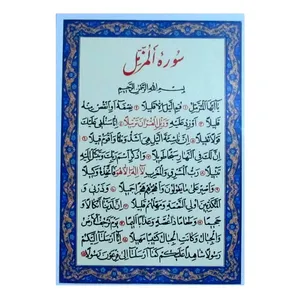 سورة المزمل
بسم الله الرحمن الرحيم
يا ايها المزمل قم اليل الا قليلا نصفه او انقص منه
قليلا او زد عليه ورتل القرآن ترتيلا انا سنلقي عليك
قولا ثقيلا ان ناشئة اليل هي اشد وطأ واقوم قيلا
ان لك في النهار سبحا طويلا واذكر اسم ربك وتبتل اليه
تبتيلا رب المشرق والمغرب لا اله الا هو فاتخذه وكيلا
واصبر على ما يقولون واهجرهم هجرا جميلا وذرني و
المكذبين اولي النعمة ومهلهم قليلا ان لدينا انكالا و
جحيما وطعاما ذا غصة وعذابا اليما يوم ترجف الارض
والجبال وكانت الجبال كثيبا مهيلا انا ارسلنا اليكم
رسولا شاهدا عليكم كما ارسلنا الى فرعون رسولا